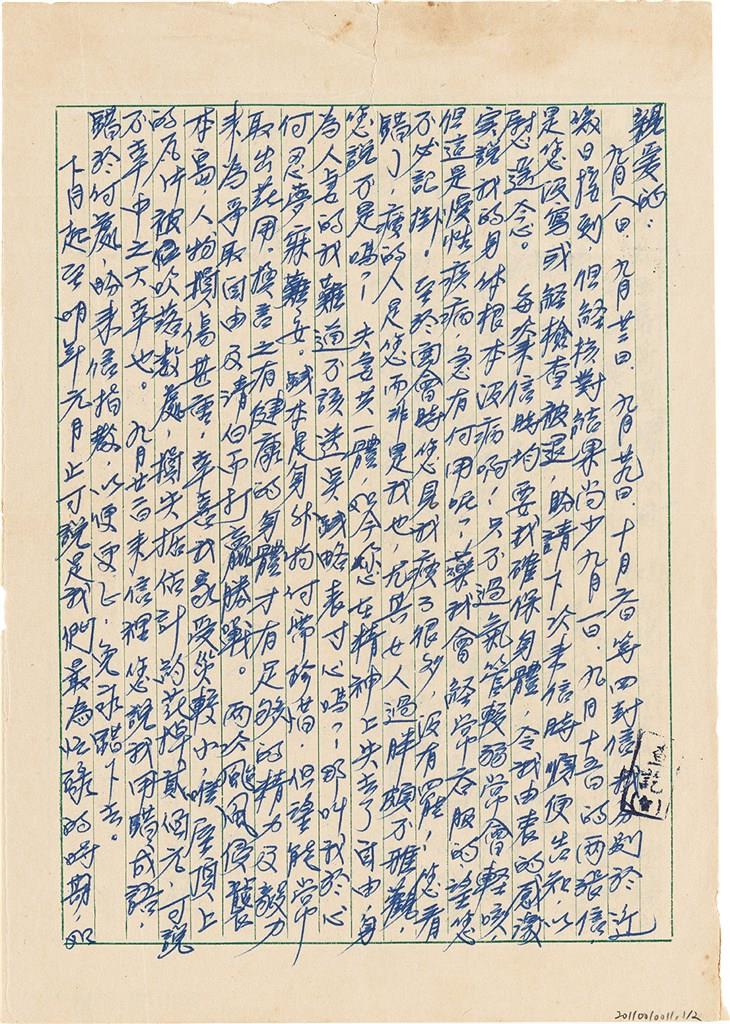 親愛的：
九月八日、九月廿三日、九月廿九日、十月六日等四封信，我分別於近
幾日接到，但經核對結果尚少九月一日、九月十五日的兩張信，
是您沒寫或經檢查被退，盼請下次來信時順便告知，以
慰遠念。 每案信時均要我確保身體，令我由衷的感激
實說我的身体根本沒病啊！只不過氣管較弱常會輕咳，
但這是慢性疾病，急有何用呢？藥我會經常吞服的望您
不必記掛。至於面會時您見我瘦了很多，沒有罷！您看
錯了，瘦的人是您而非是我也，尤其女人過胖頗不雅觀，
您說不是嗎？ 夫妻共一體，如今您在精神上失去了自由，身
為人妻的我難道不該送吳賊略表寸心嗎？那叫我於心
何忍夢寐難安。賊本是身外物何需珍惜，但望能常
取出花用。換言之有健康的身體才有足夠的精力及毅力
來為爭取自由及清白而打贏勝戰。 兩次颱風侵襲
本島人物損傷甚重，幸喜我家受災較小，唯屋頂上
的瓦片被吹落數處，損失据估計約花掉貳個元，可說
不幸中之大幸也。 九月廿二日來信裡您說我用錯成語，
錯於何處，盼來信指教，以便更正，免求錯下去。
下月起至明年元月止可說是我們最為忙碌的時期，如
2011001001, 1/2